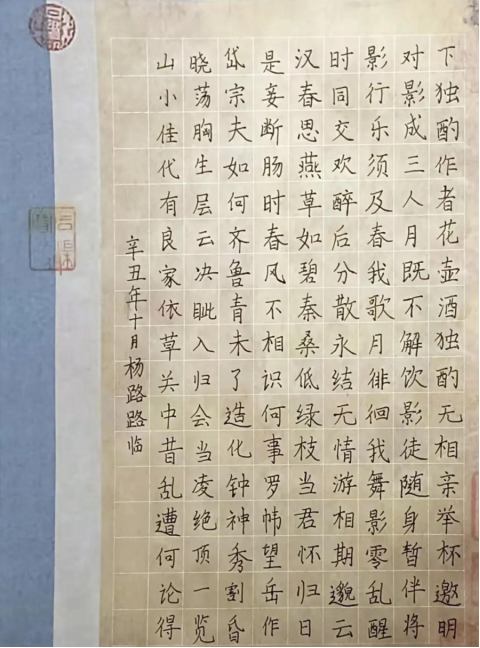 下独酌作者花壶酒独酌无相亲举杯邀明
对影成三人月既不解饮影徒随身暂伴将
影行乐须及春我歌月徘徊我舞影零乱醒
时同交欢醉后分散永结无情游相期邈云
汉春思燕草如碧秦桑低绿枝当君怀归日
是妾断肠时春风不相识何事罗帏望岳作
岱宗夫如何齐鲁青未了造化钟神秀割昏
晓荡胸生层云决眦入归会当凌绝顶一览
山小佳代有良家依草关中昔乱遭何论得
辛丑年十月杨路路临